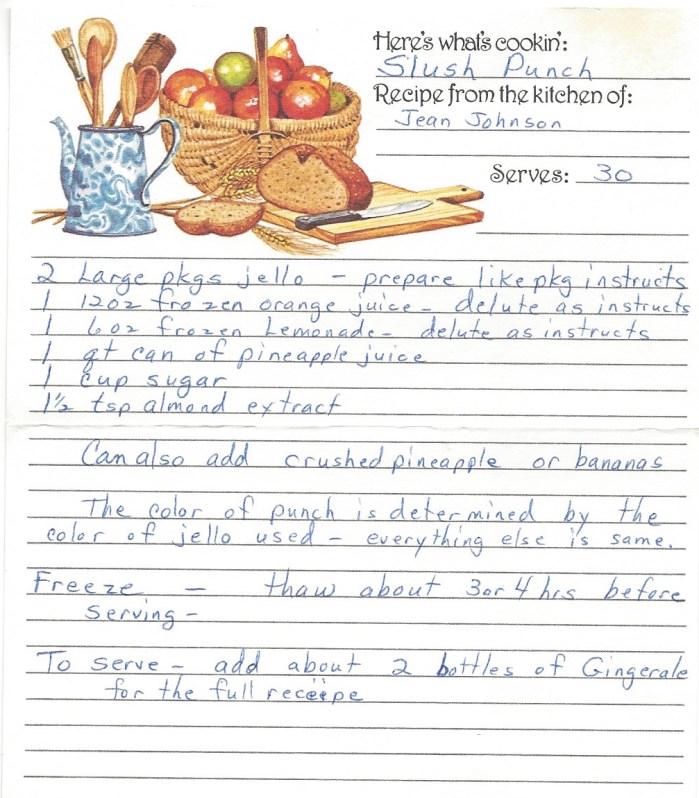 Here's what's cookin':
Slush Punch
Recipe from the kitchen of:
Jean Johnson
Serves: 30
2 Large pkgs jello - prepare like pkg instructs
1 12oz frozen orange juice - delute as instructs
1 6oz frozen Lemonade - delute as instructs
1 qt can of pineapple juice
1 cup sugar
1½ tsp almond extract
Can also add crushed pineapple or bananas
The color of punch is determined by the
color of jello used - everything else is same.
Freeze - thaw about 3 or 4 hrs before
serving -
To serve - add about 2 bottles of Gingerale
for the full receipe